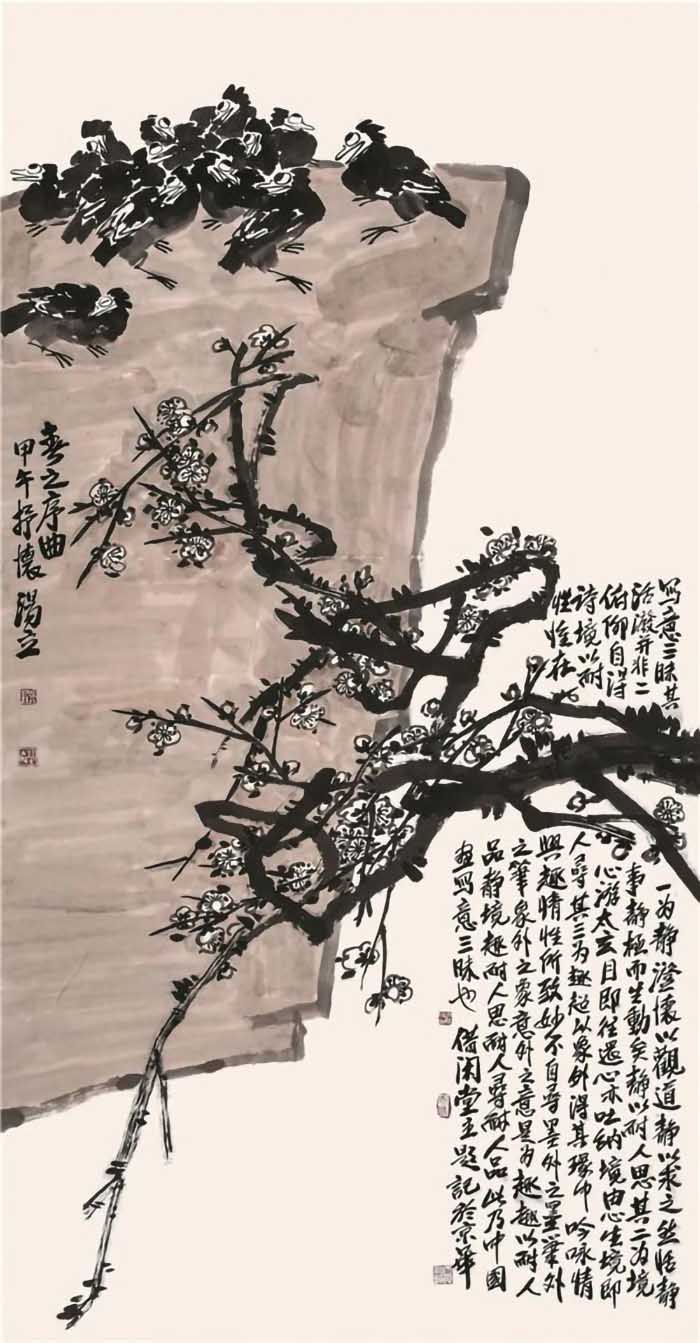 春之序曲
甲午抒懷 湯立
写意三昧其一为静澄懷以觀道静以求之然恬静
活潑并非二事静極而生動矣静以耐人思其二为境
俯仰自得心游太玄目即往還心亦吐纳境由心生境即
诗境以耐人尋其三为趣超以象外得其環中吟咏情
性恰在於興趣情性所致妙不自尋墨外之墨筆外
之筆象外之象意外之意是为趣趣以耐人
品静境趣耐人思耐人尋耐人品此乃中國
画写意三昧也 借闲堂主题記於京華